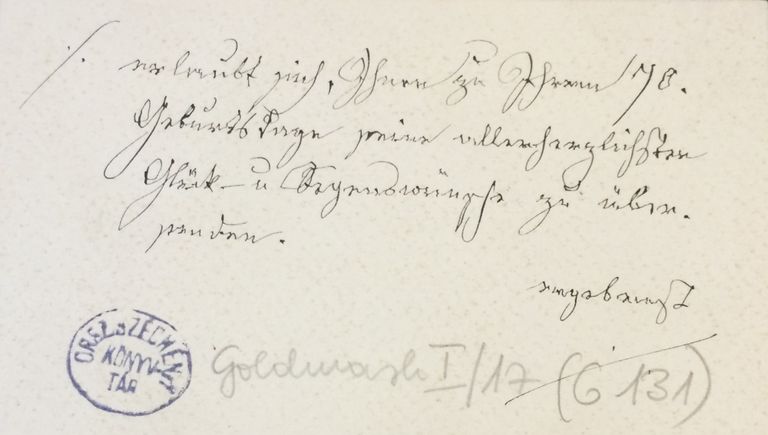 /. erlaubt sich, Ihnen zu Ihrem 70.
Geburtstage seine allerherzlichsten
Glück- u Segenswünsche zu über-
senden.
ergebenst
ORSZ. SZÉCHÉNYI
KÖNYV-
TÁR
Goldmark I/17 (G 131)